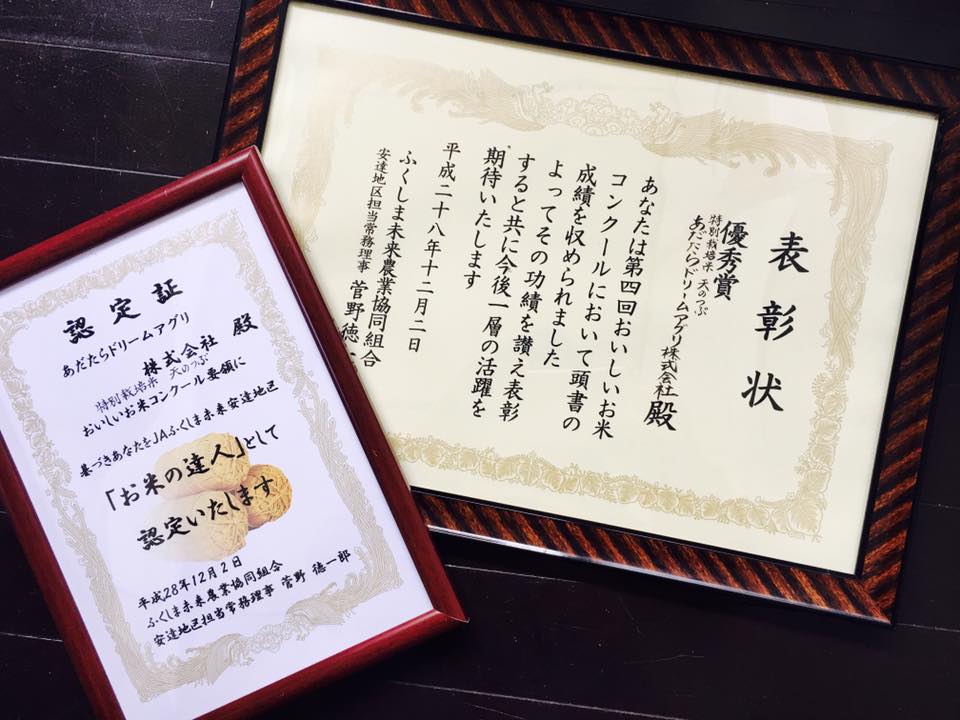 表彰状
優秀賞
特別栽培米 天のつぶ
あだたらドリームアグリ株式会社 殿
あなたは第四回おいしいお米
コンクールにおいて頭書の
成績を収められました
よってその功績を讃え表彰
すると共に今後一層の活躍を
期待いたします
平成二十八年十二月二日
ふくしま未来農業協同組合
安達地区担当常務理事 菅野徳
認定証
あだたらドリームアグリ
株式会社 殿
特別栽培米 天のつぶ
おいしいお米コンクール要領に
基づきあなたをJAふくしま未来安達地区
「お米の達人」として
認定いたします
平成28年12月2日
ふくしま未来農業協同組合
安達地区担当常務理事 菅野 徳一郎